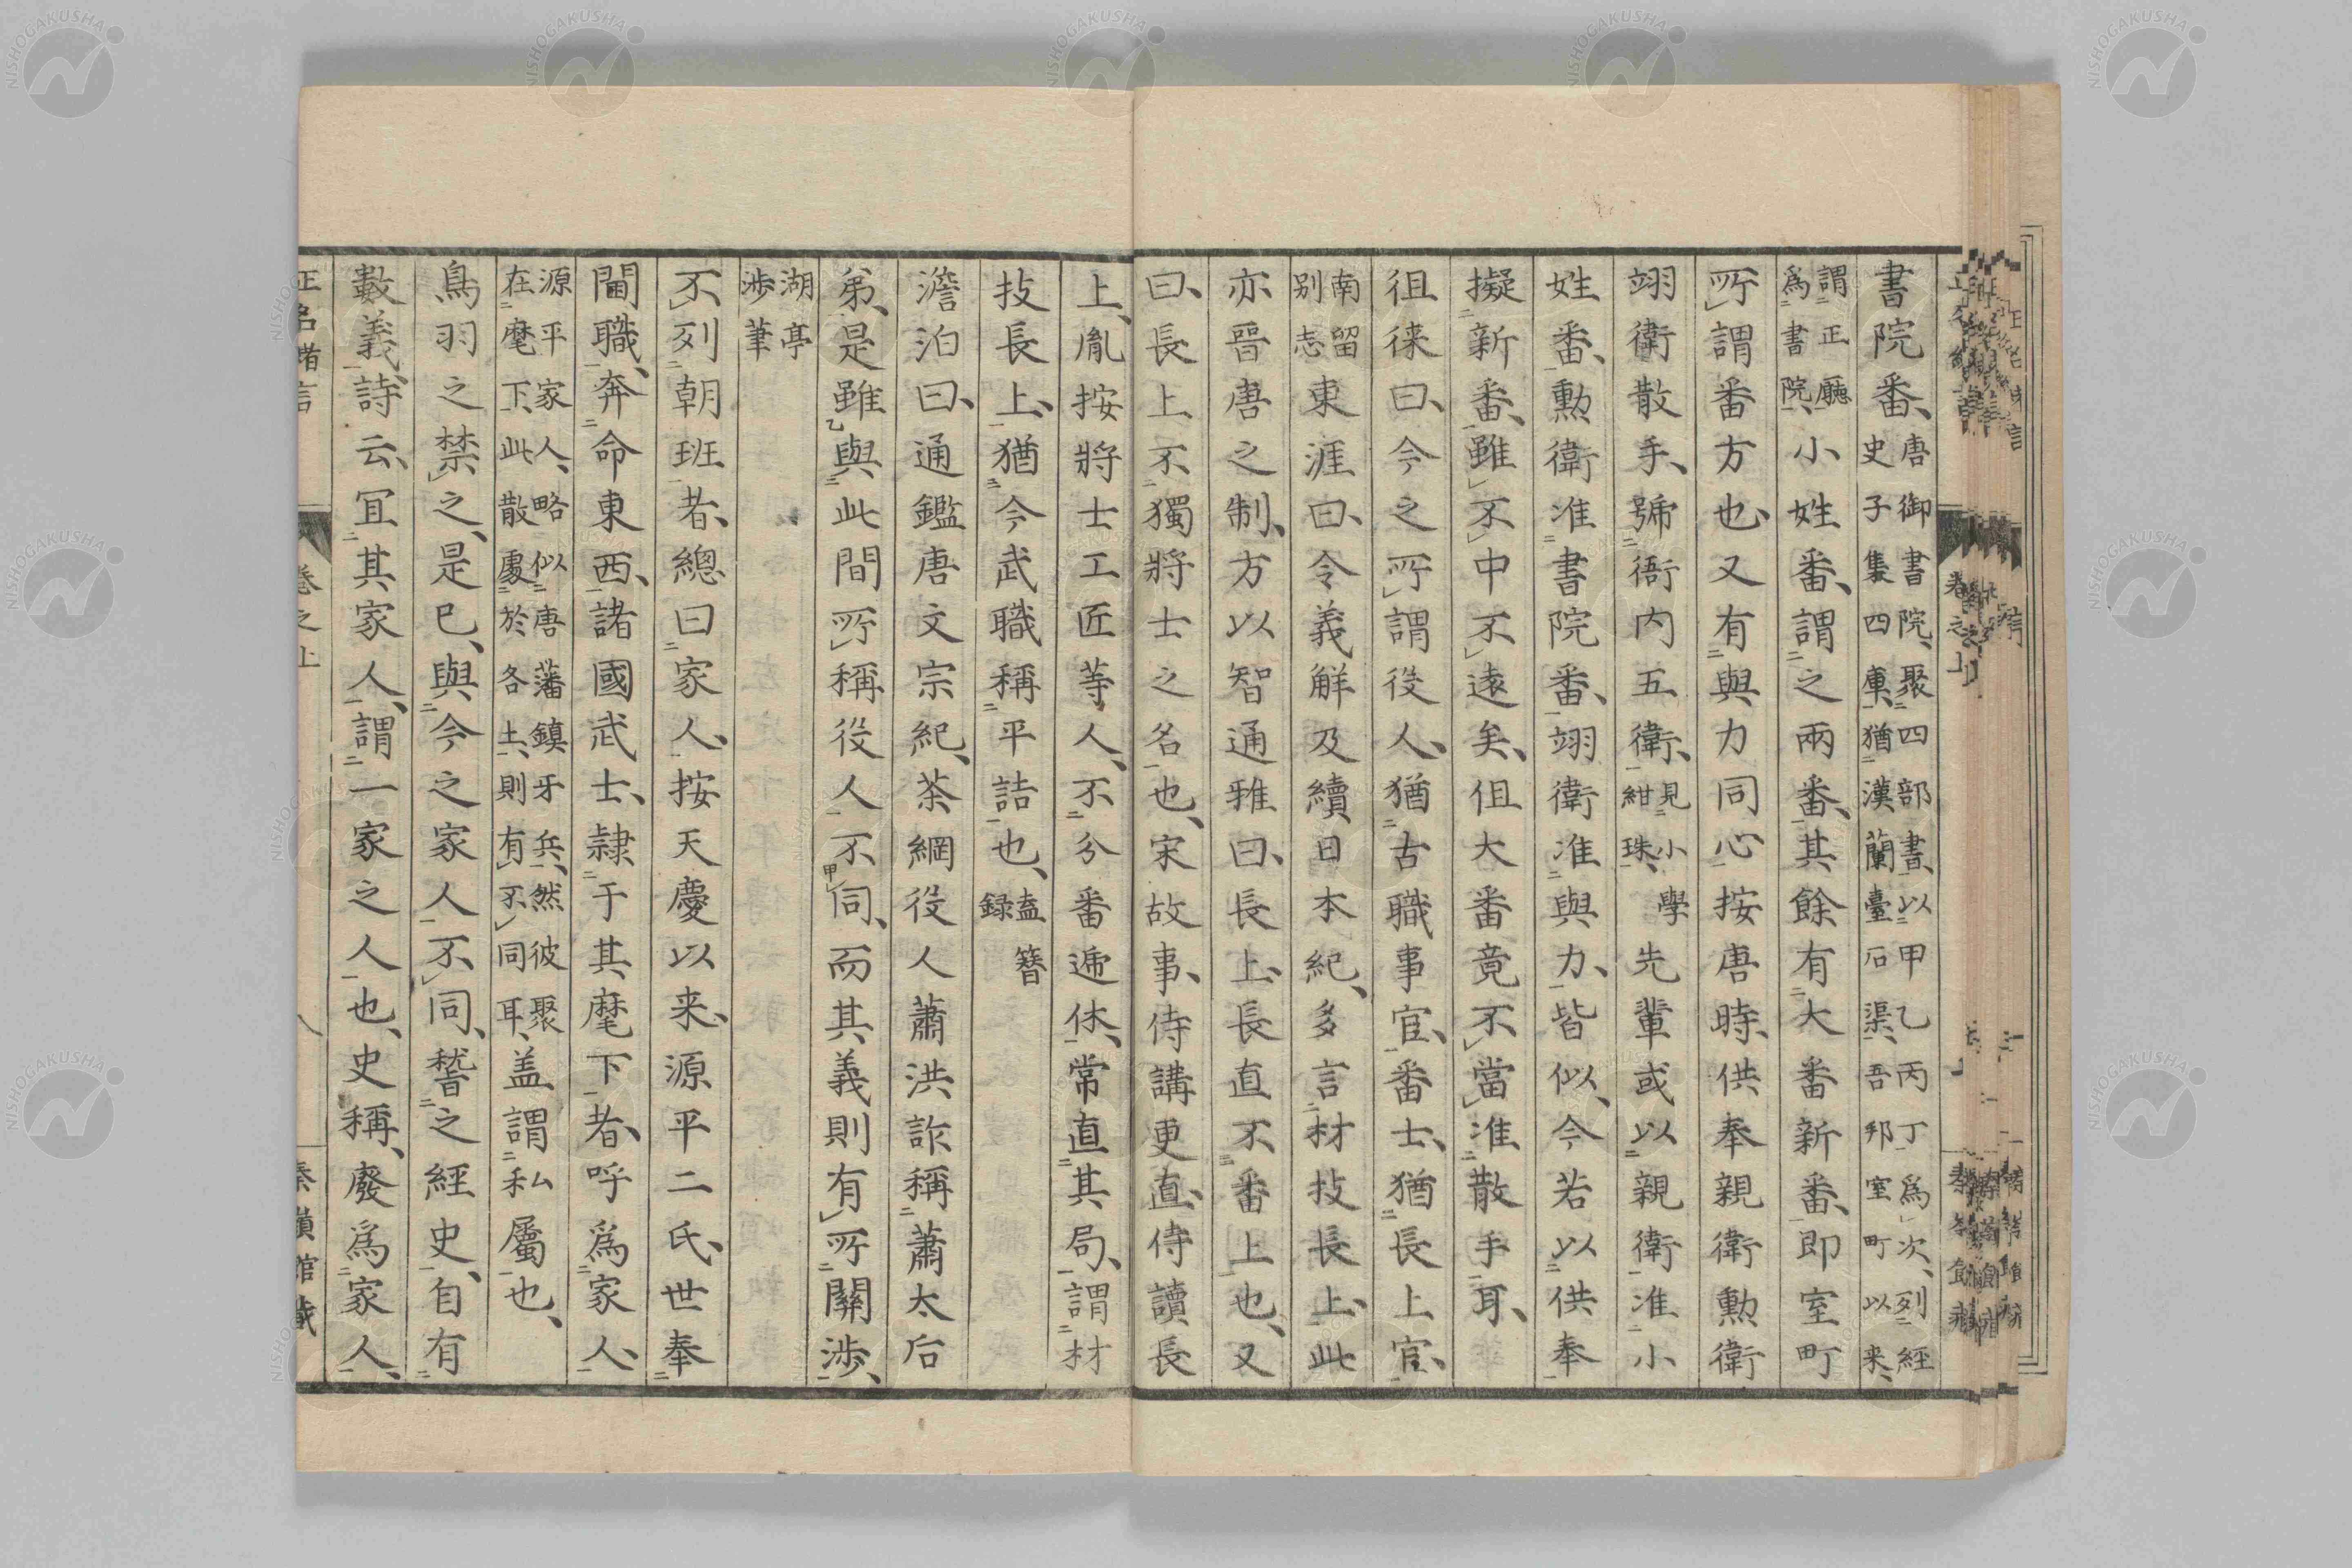 書院番、唐御書院、聚四部書、以甲乙丙丁爲次、列經史子集四庫、猶漢蘭臺石渠、吾邦室町以来、
謂正廳爲書院、小姓番、謂之兩番、其餘有大番新番、即室町
所謂番方也、又有與力同心、按唐時、供奉親衛勲衛
翊衛散手、號衙内五衛、見小學紺珠、先軰或以親衛准小
姓番、勲衛准書院番、翊衛准與力、皆似、今若以供奉
擬新番、雖不中不遠矣、但大番竟不當准散手耳、
徂徠曰、今之所謂役人、猶古職事官、番士、猶長上官、
南留別志東涯曰、令義解及續日本紀、多言材技長上、此
亦晉唐之制、方以智通雅曰、長上、長直不番上也、又
曰、長上不獨將士之名也、宋故事、侍講更直、侍讀長
上、胤按將士工匠等人、不分番遞休、常直其局、謂材
技長上、猶今武職稱平詰也、盍簪録
澹泊曰、通鑑唐文宗紀、茶綱役人蕭洪詐稱蕭太后
弟、是雖與此間所稱役人不同、而其義則有所關渉、
湖亭渉筆
不列朝班者、總曰家人、按天慶以来、源平二氏、世奉
閫職、奔命東西、諸國武士、隷于其麾下者、呼爲家人、
源平家人、略似唐藩鎮牙兵、然彼聚在麾下、此散處於各土、則有不同耳、盖謂私屬也、
鳥羽之禁之、是已、與今之家人不同、稽之經史、自有
數義、詩云、宜其家人、謂一家之人也、史稱、廢爲家人、
正名緒言 卷之上 八